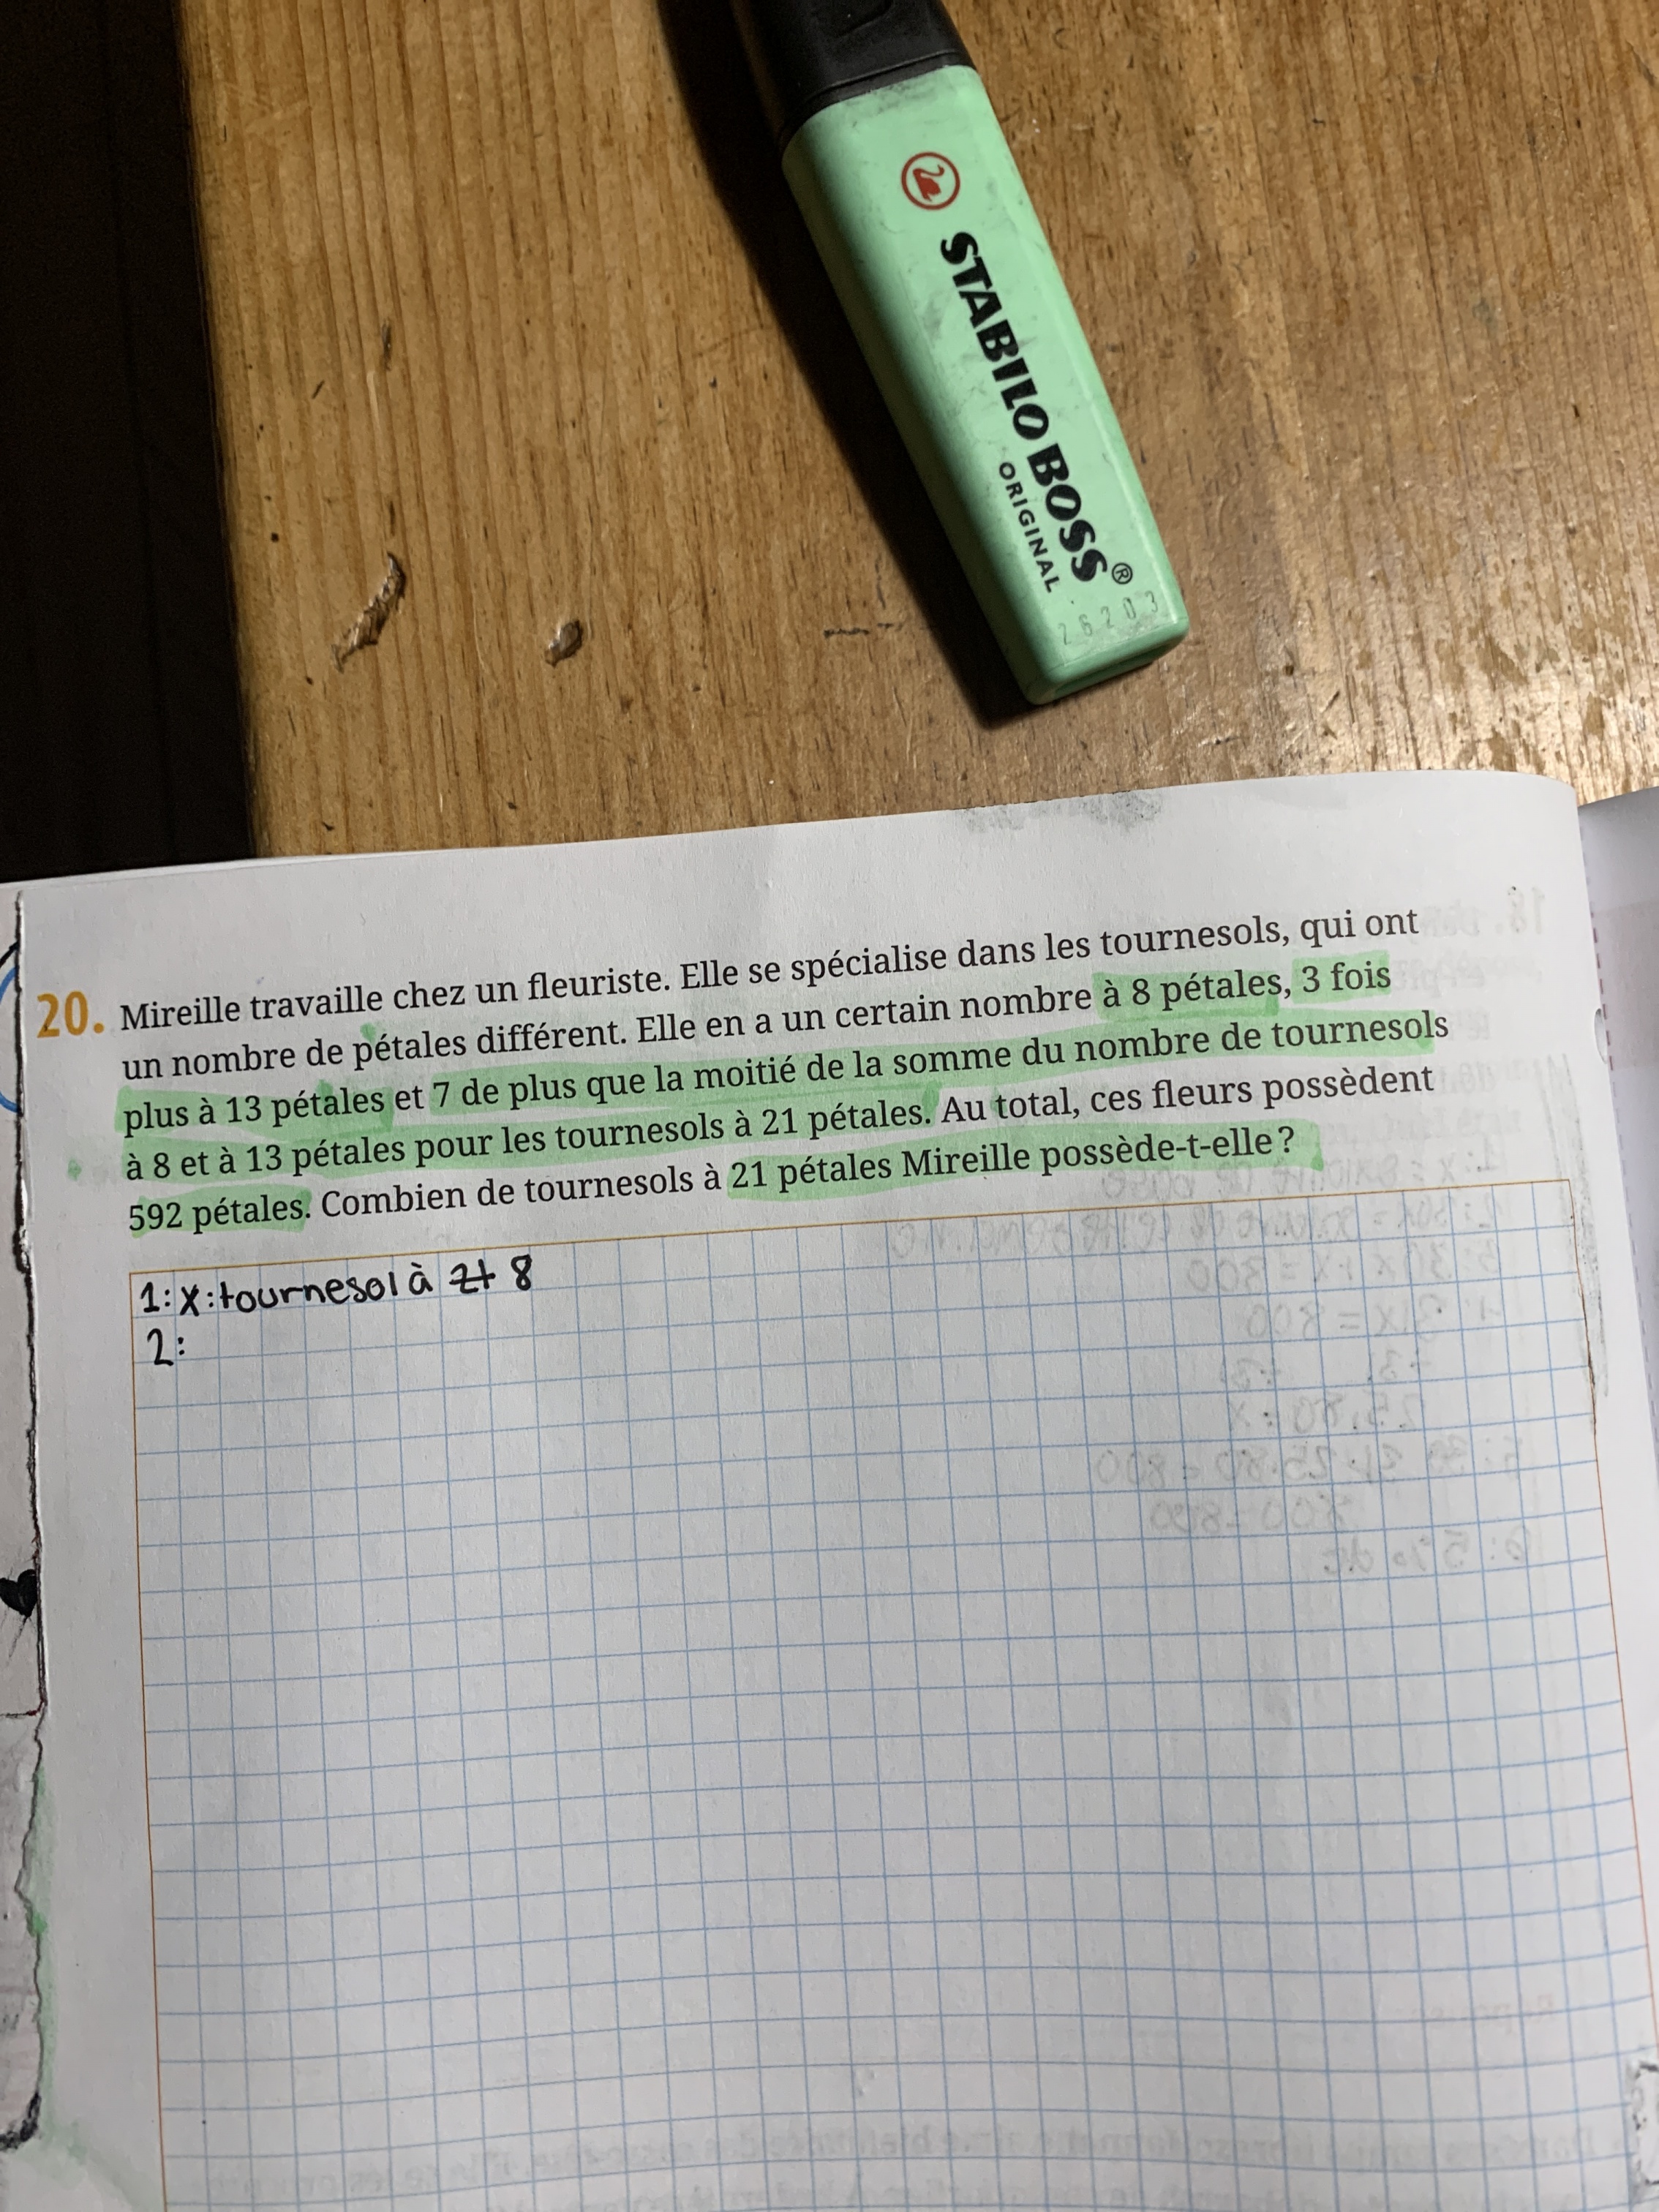 STABILO BOSS®
ORIGINAL
26203
20. Mireille travaille chez un fleuriste. Elle se spécialise dans les tournesols, qui ont
un nombre de pétales différent. Elle en a un certain nombre à 8 pétales, 3 fois
plus à 13 pétales et 7 de plus que la moitié de la somme du nombre de tournesols
à 8 et à 13 pétales pour les tournesols à 21 pétales. Au total, ces fleurs possèdent
592 pétales. Combien de tournesols à 21 pétales Mireille possède-t-elle ?
1: x: tournesol à 8
2: